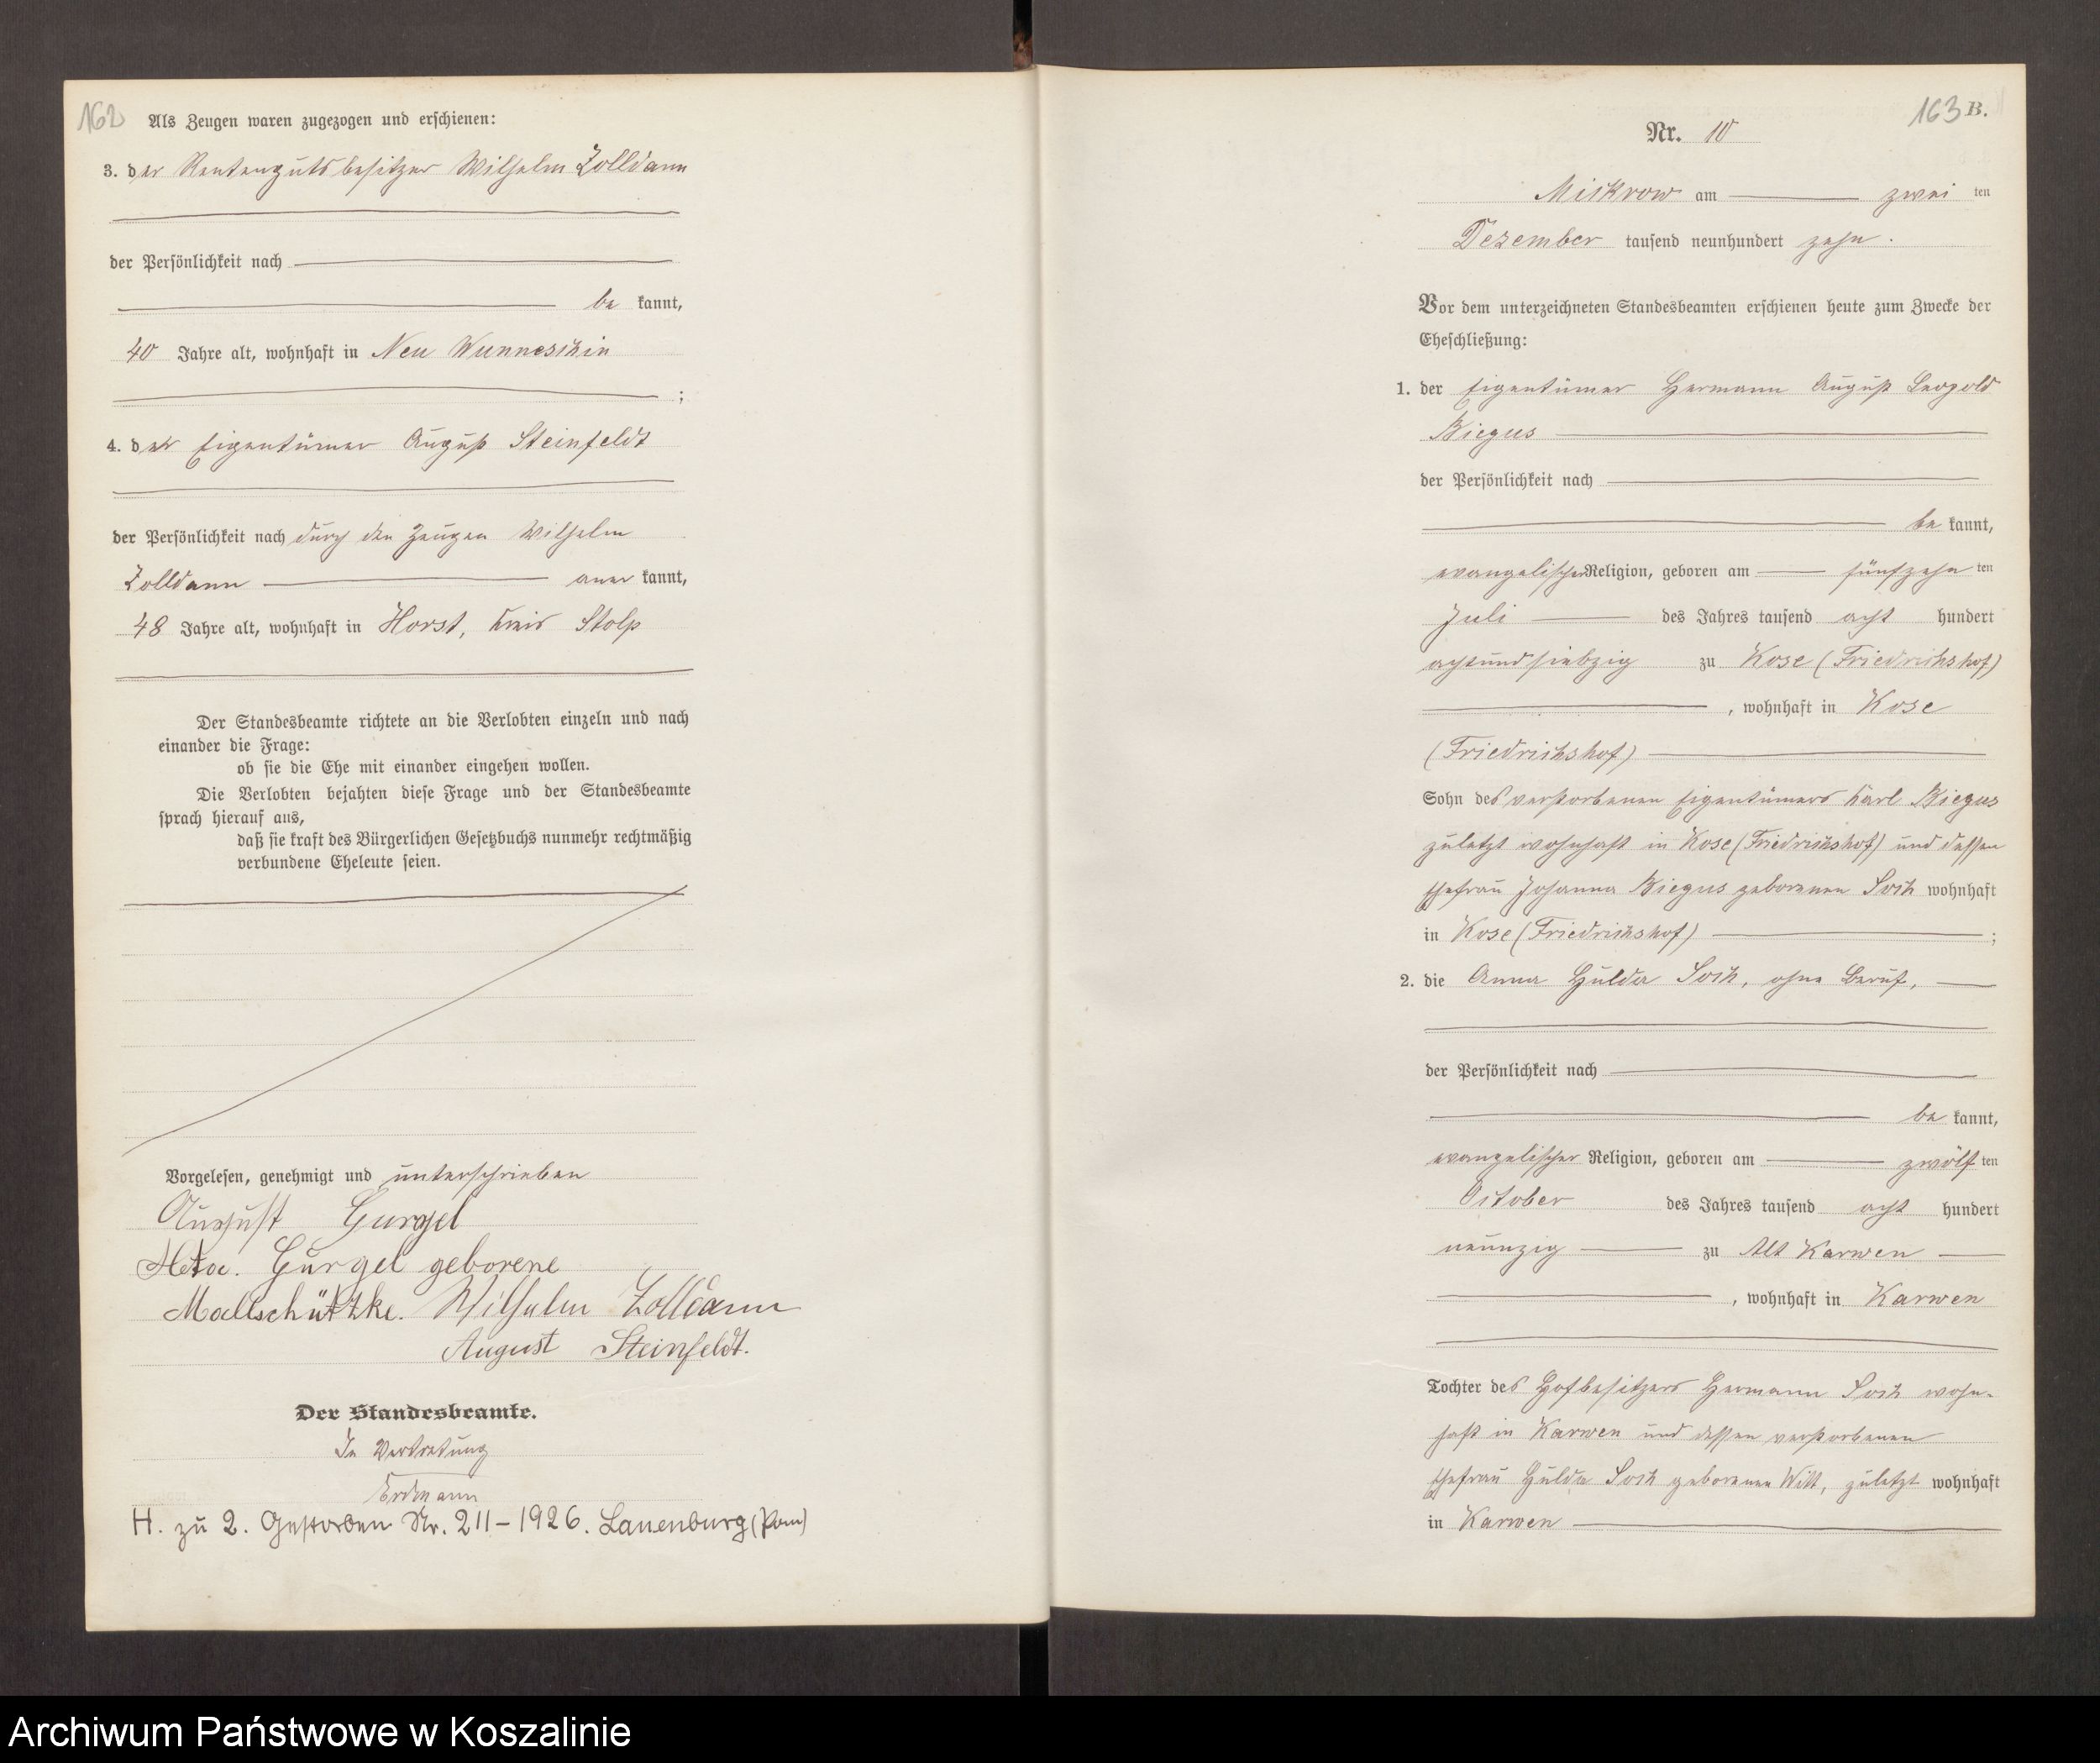 162
Als Zeugen waren zugezogen und erschienen:
3. der Rentengutsbesitzer Wilhelm Zolldann
der Persönlichkeit nach
be kannt,
40 Jahre alt, wohnhaft in Neu Wunneschin
;
4. der Eigentümer August Steinfeldt
der Persönlichkeit nach durch den Zeugen Wilhelm
Zolldann aner kannt,
48 Jahre alt, wohnhaft in Horst, Kreis Stolp
Der Standesbeamte richtete an die Verlobten einzeln und nach
einander die Frage:
ob sie die Ehe mit einander eingehen wollen.
Die Verlobten bejahten diese Frage und der Standesbeamte
sprach hierauf aus,
daß sie kraft des Bürgerlichen Gesetzbuchs nunmehr rechtmäßig
verbundene Eheleute seien.
Vorgelesen, genehmigt und unterschrieben
August Gurgel
Gurgel geborene
Mallschützke. Wilhelm Zolldann
August Steinfeldt.
Der Standesbeamte.
In Vertretung
Erdmann
H. zu 2. Gestorben Nr. 211-1926. Lauenburg (Pom)
163 B.
Nr. 10
Mickrow am zwei ten
Dezember tausend neunhundert zehn.
Vor dem unterzeichneten Standesbeamten erschienen heute zum Zwecke der
Eheschließung:
1. der Eigentümer Hermann August Leopold
Biegus
der Persönlichkeit nach
be kannt,
evangelischer Religion, geboren am fünfzehn ten
Juli des Jahres tausend acht hundert
achtundsiebzig zu Kose (Friedrichshof)
, wohnhaft in Kose
(Friedrichshof)
Sohn des verstorbenen Eigentümers Karl Biegus
zuletzt wohnhaft in Kose (Friedrichshof) und dessen
Ehefrau Johanna Biegus geborenen Sock wohnhaft
in Kose (Friedrichshof) ;
2. die Anna Hulda Sock, ohne Beruf,
der Persönlichkeit nach
be kannt,
evangelischer Religion, geboren am zwölf ten
October des Jahres tausend acht hundert
neunzig zu Alt Karwen
, wohnhaft in Karwen
Tochter des Hofbesitzers Hermann Sock wohn-
haft in Karwen und dessen verstorbenen
Ehefrau Hulda Sock geborenen Witt, zuletzt wohnhaft
in Karwen
Archiwum Państwowe w Koszalinie